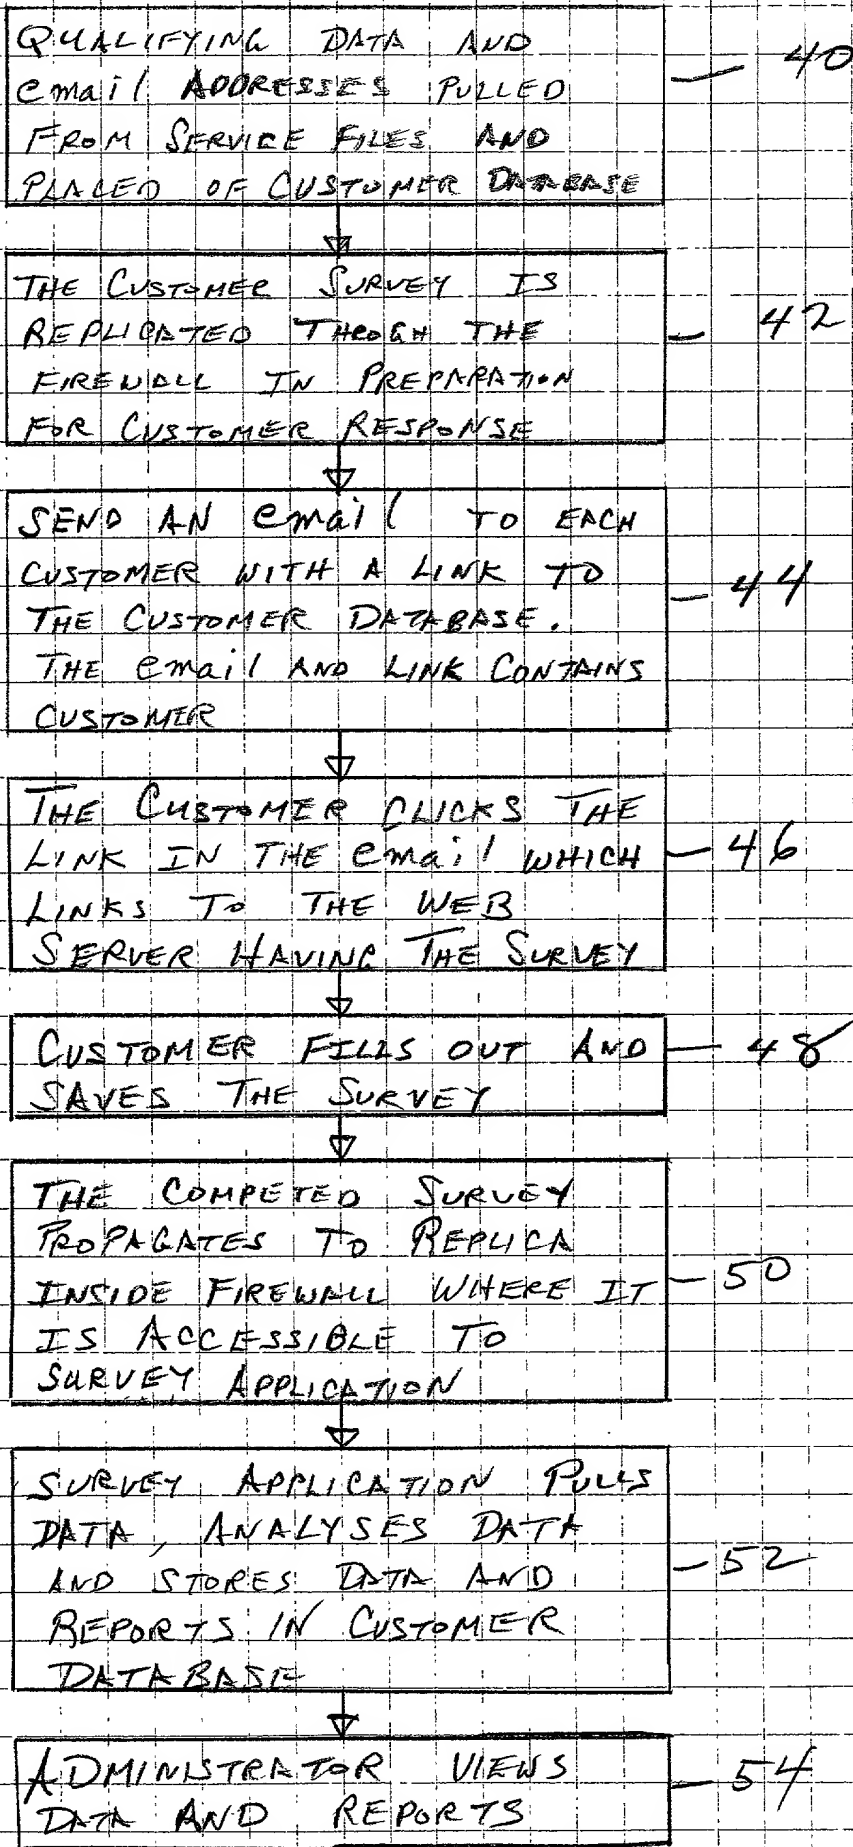 QUALIFYING DATA AND
email ADDRESSES PULLED — 40
FROM SERVICE FILES AND
PLACED OF CUSTOMER DATABASE
THE CUSTOMER SURVEY IS
REPLICATED THROGH THE — 42
FIREWALL IN PREPARATION
FOR CUSTOMER RESPONSE
SEND AN email TO EACH
CUSTOMER WITH A LINK TO — 44
THE CUSTOMER DATABASE.
THE email AND LINK CONTAINS
CUSTOMER
THE CUSTOMER CLICKS THE
LINK IN THE email WHICH — 46
LINKS TO THE WEB
SERVER HAVING THE SURVEY
CUSTOMER FILLS OUT AND — 48
SAVES THE SURVEY
THE COMPETED SURVEY
PROPAGATES TO REPLICA
INSIDE FIREWALL WHERE IT — 50
IS ACCESSIBLE TO
SURVEY APPLICATION
SURVEY APPLICATION PULLS
DATA, ANALYSES DATA
AND STORES DATA AND — 52
REPORTS IN CUSTOMER
DATABASE
ADMINISTRATOR VIEWS — 54
DATA AND REPORTS